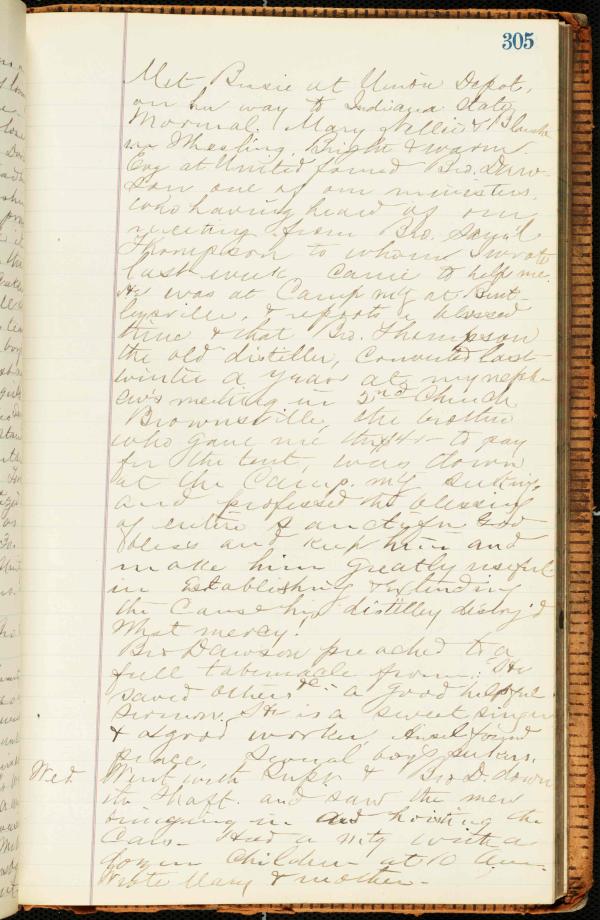 305
Met Bessie at Union Depot,
on her way to Indiana State
Normal. Mary Nellie & Blanche
in Wheeling. Bright & warm.
Evg at United found Bro. Daw-
son one of our ministers,
who having heard of our
meeting from Bro. Sam'l
Thompson to whom I wrote
last week came to help me.
He was at Camp mtg at Bent-
leysville, & reports a blessed
time & that Bro. Thompson
the old distiller, converted last
winter a year at my neph-
ew's meeting in 2nd Church
Brownsville, the brother
who gave me to pay
for the tent, was down
at the Camp. mtg seeking
and professed the blessing
of entire God
bless and keep him and
make him greatly useful
in Establishing & extending
the Cause his distilley distroy'd
What mercy!
Bro Dawson preached to a
full tabernacle from: "He
saved others &c" a good helpful
sermon. He is a sweet singer
& a good worker, found
peace, several boys seekers.
Wed. Went with Supt. & Bro D. down
the Shaft. and saw the men
bringing in and hoisting the
Cars. Had a mtg with a
dozen children at 10 a.m.
Wrote Mary & mother.